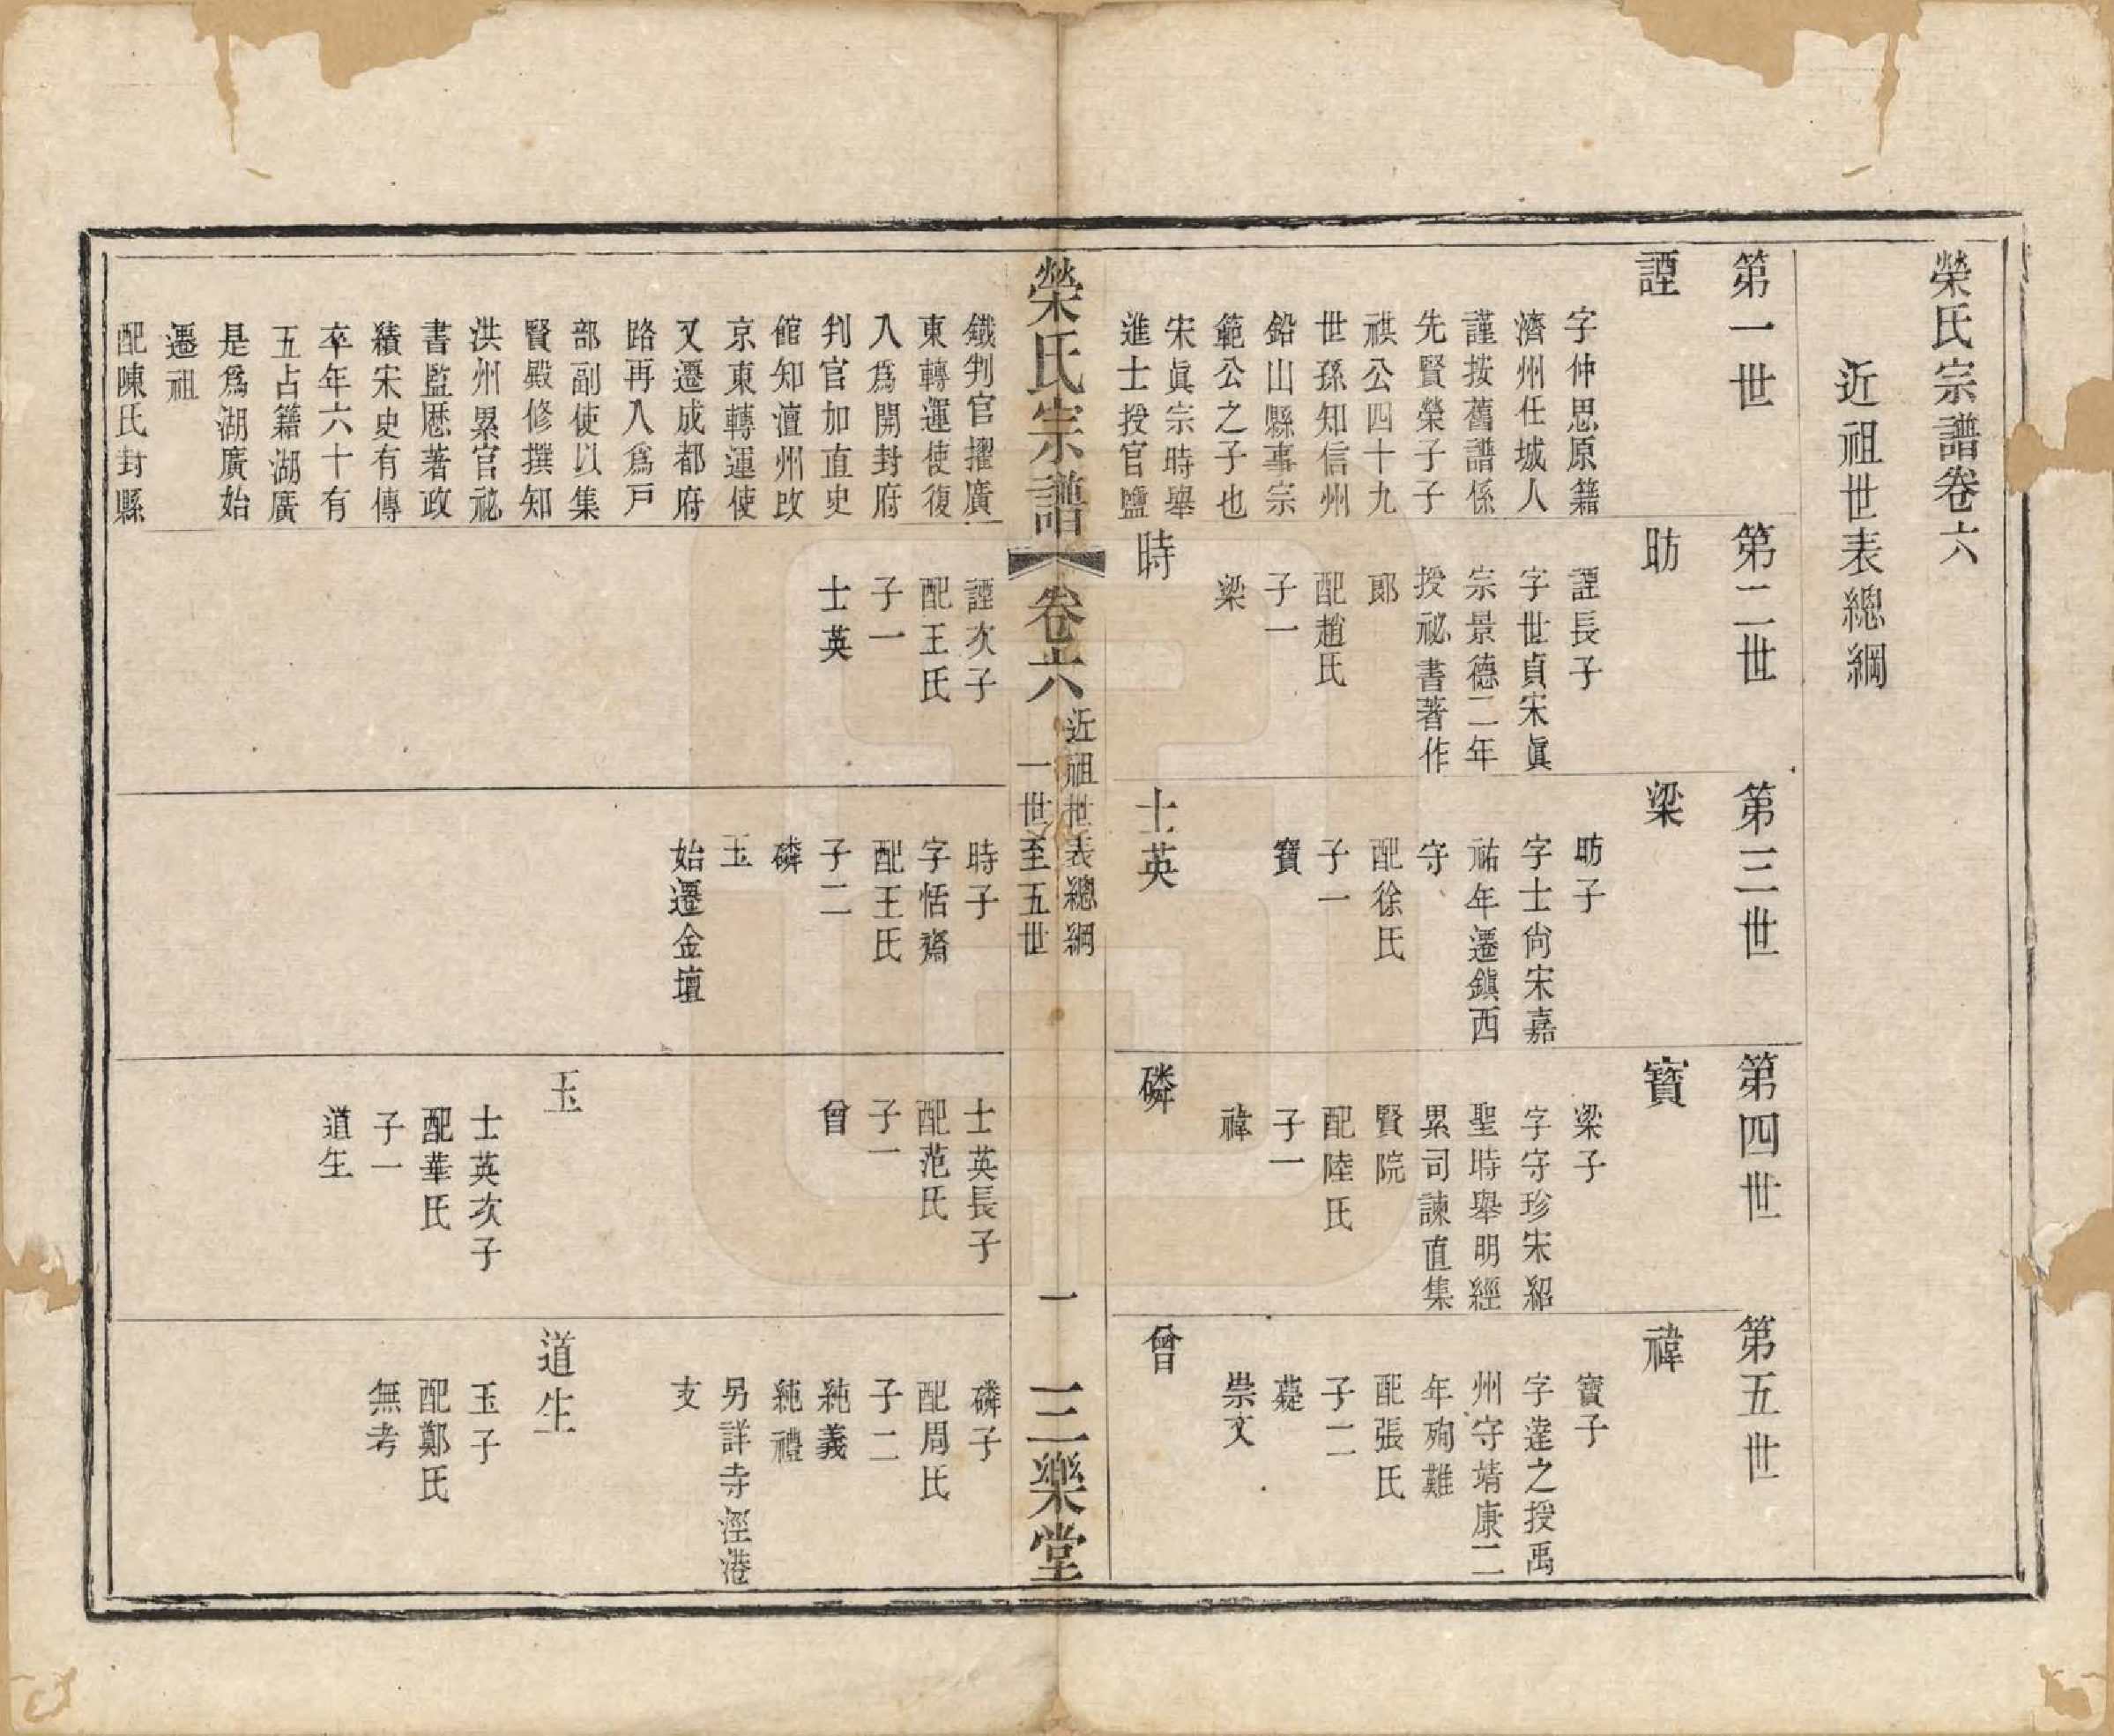 榮氏宗譜卷六
近祖世表總綱
第一世
諲
字仲思原籍
濟州任城人
謹按舊譜係
先賢榮子子
祺公四十九
世孫知信州
鉛山縣事宗
範公之子也
宋眞宗時舉
進士授官鹽
第二世
昉
諲長子
字世貞宋眞
宗景德二年
授祕書著作
郎
配趙氏
子一
梁
時
第三世
梁
昉子
字士尙宋嘉
祐年遷鎭西
守
配徐氏
子一
寶
士英
第四世
寶
梁子
字守珍宋紹
聖時舉明經
累司諫直集
賢院
配陸氏
子一
禕
磷
第五世
禕
寶子
字達之授禹
州守靖康二
年殉難
配張氏
子二
薿
崇文
曾
榮氏宗譜
卷六
近祖世表總綱
一世至五世
一
三樂堂
鐵判官擢廣
東轉運使復
入爲開封府
判官加直史
館知澶州改
京東轉運使
又遷成都府
路再入爲戸
部副使以集
賢殿修撰知
洪州累官祕
書監歷著政
績宋史有傳
卒年六十有
五占籍湖廣
是爲湖廣始
遷祖
配陳氏封縣
諲次子
配王氏
子一
士英
時子
字恬齋
配王氏
子二
磷
玉
始遷金壇
士英長子
配范氏
子一
曾
玉
士英次子
配華氏
子一
道生
磷子
配周氏
子二
純義
純禮
另詳寺涇港
支
道生
玉子
配鄭氏
無考